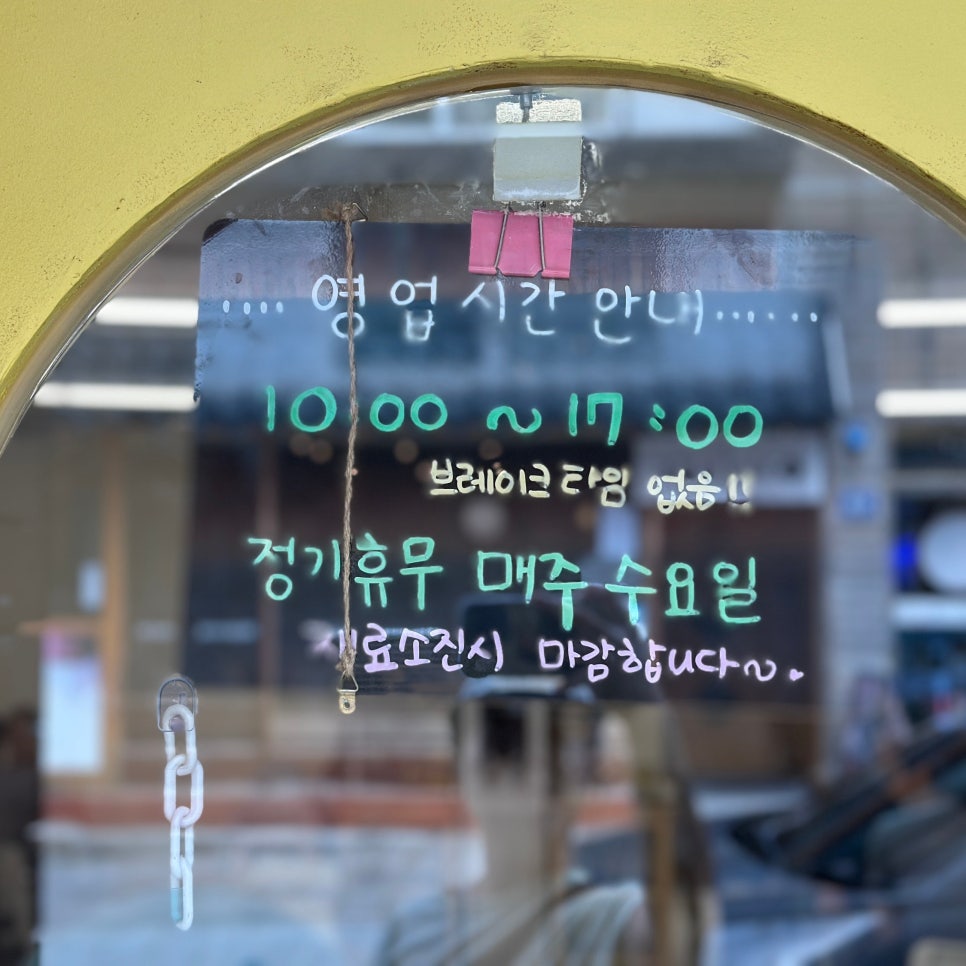 .... 영업시간 안내......
10:00 ~ 17:00
브레이크 타임 없음!!
정기휴무 매주 수요일
재료소진시 마감합니다~.